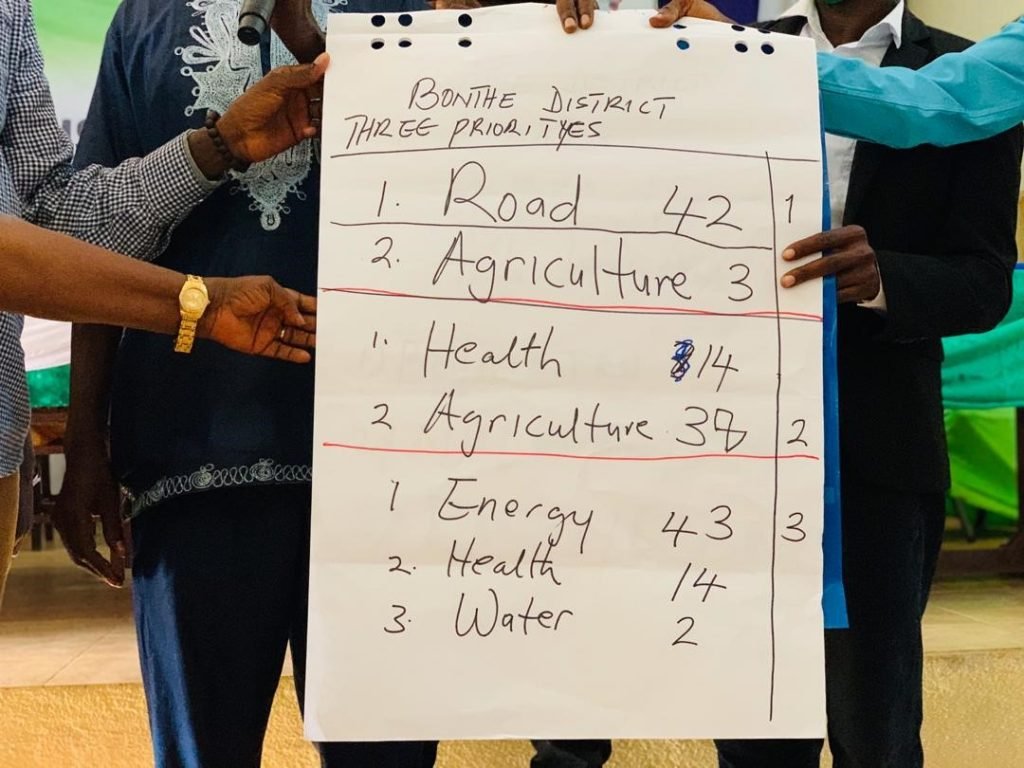 BONTHE DISTRICT
THREE PRIORITYES
1. Road 42 1
2. Agriculture 3
1. Health 14
2 Agriculture 38 2
1 Energy 43 3
2. Health 14
3. Water 2